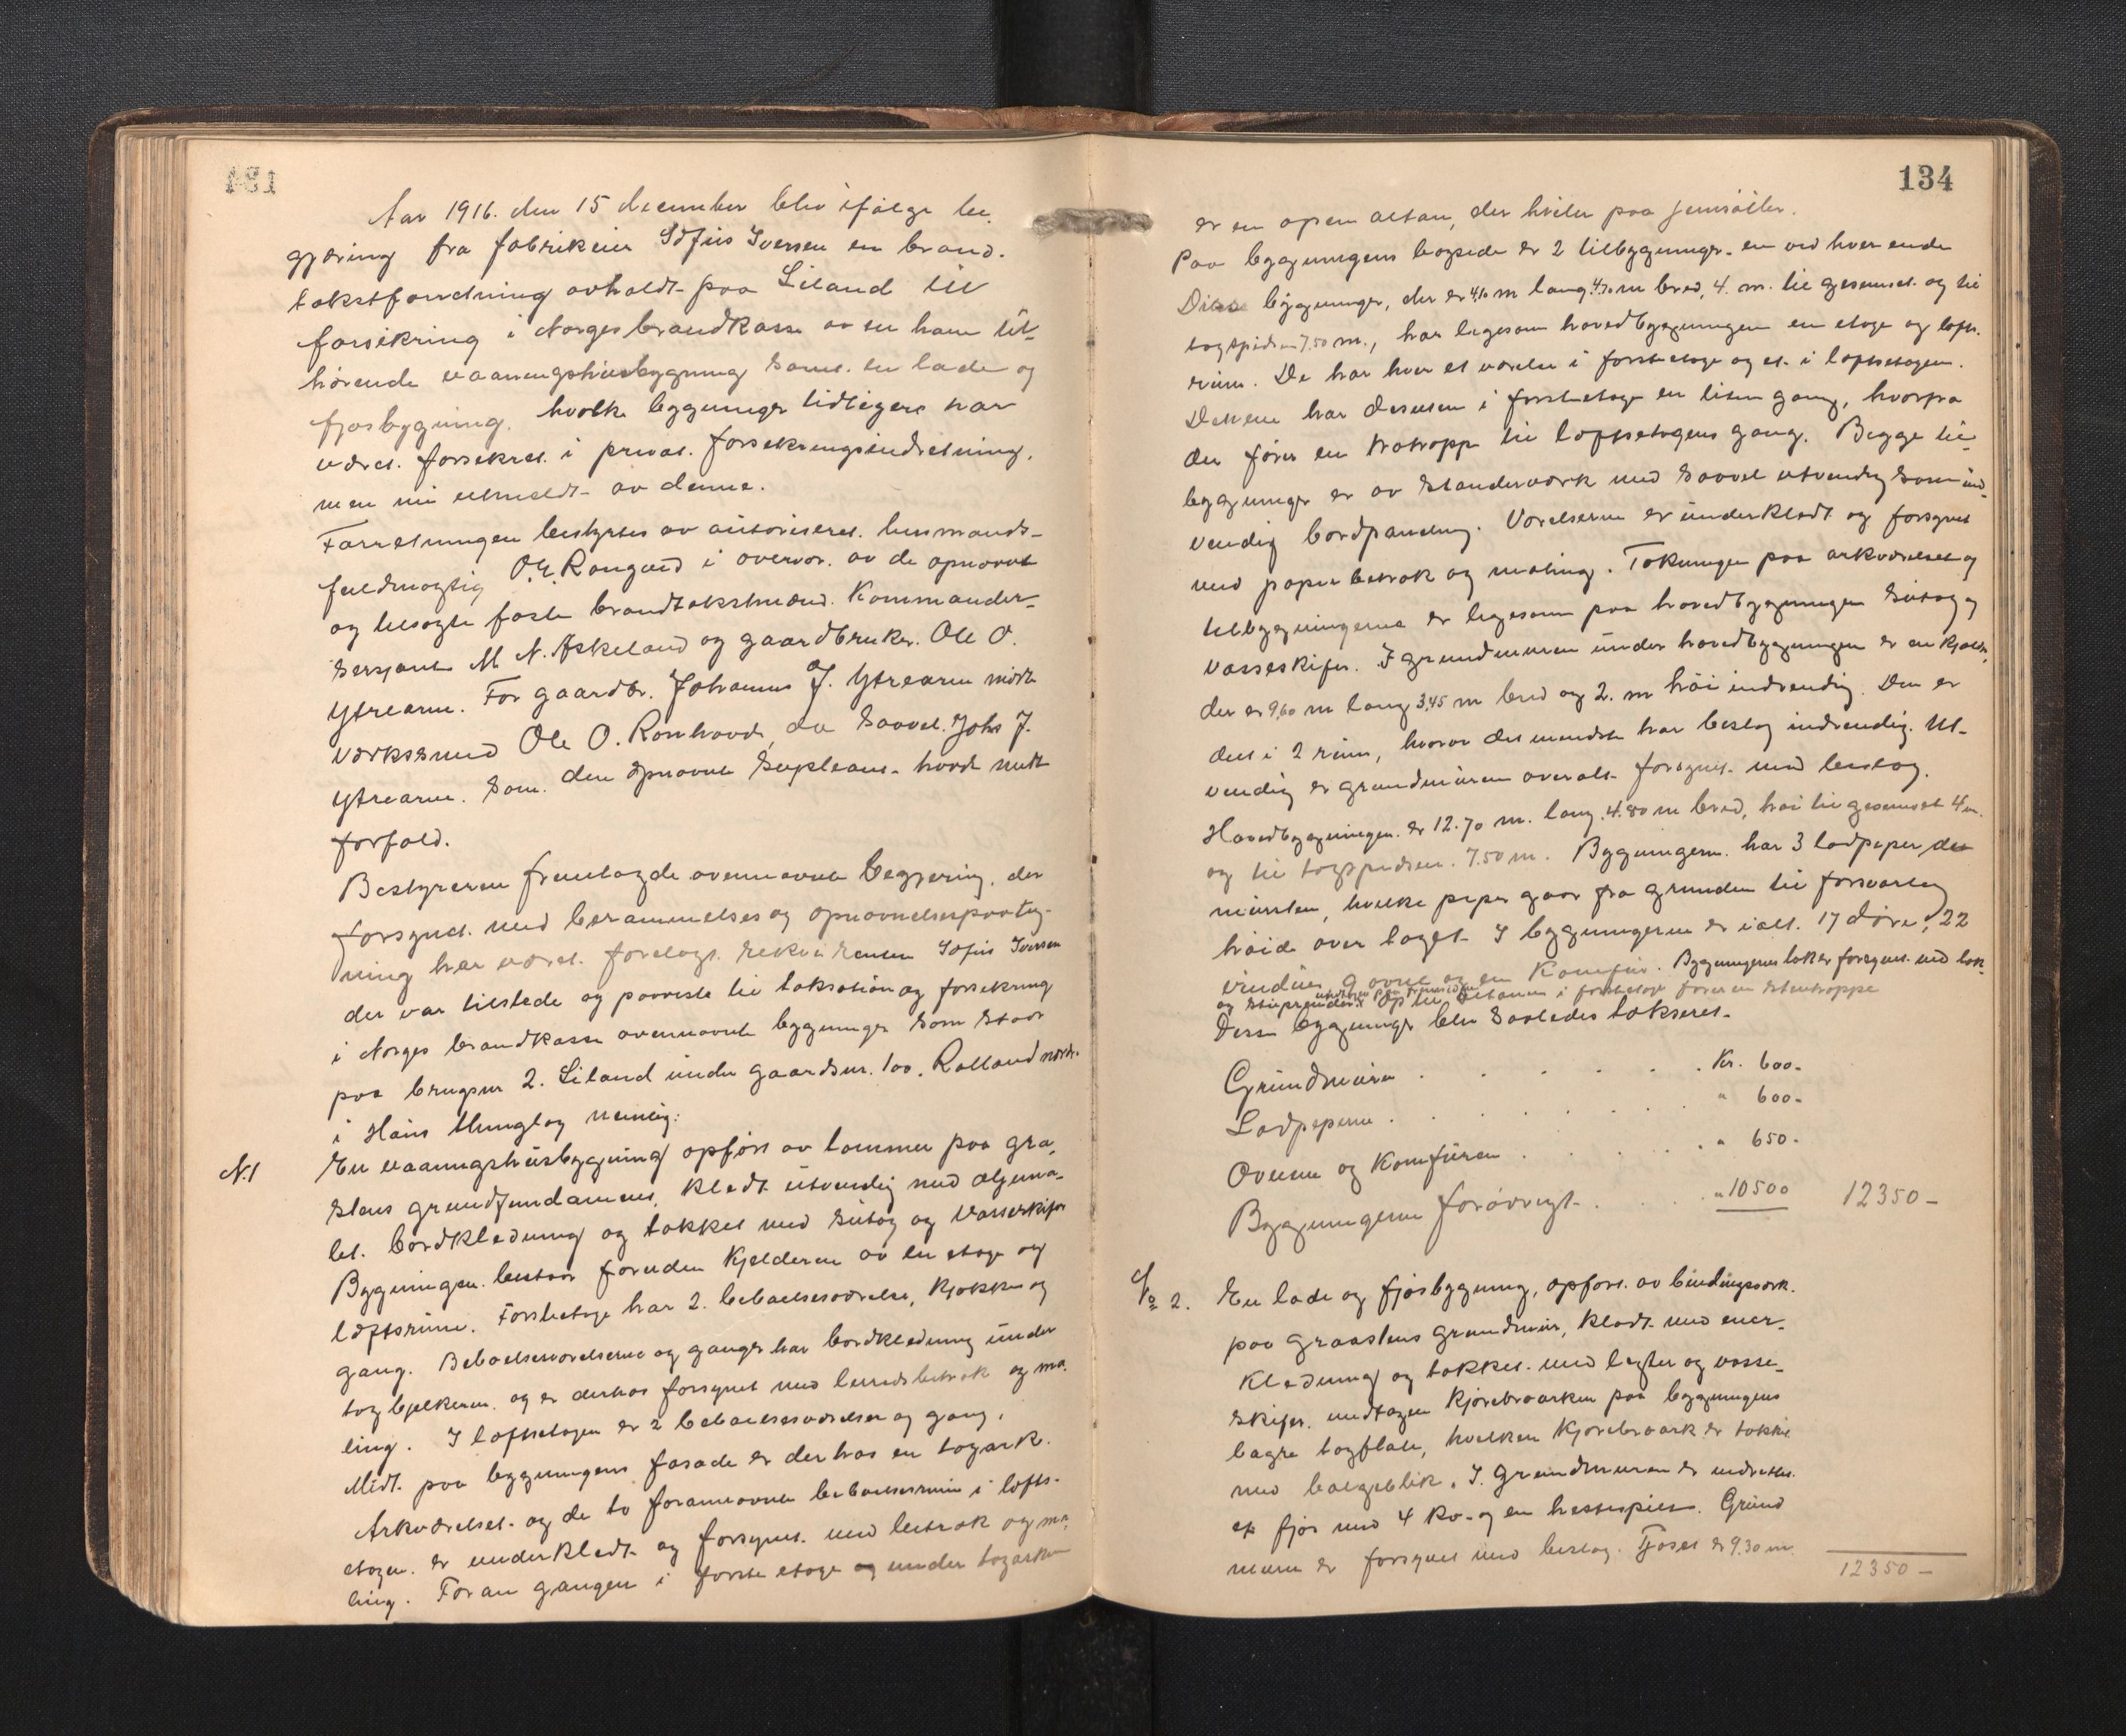 Aar 1916. den 15 december blev ifølge be,
gjæring fra fabrikeier Sofus Iversen en brand-
takstforretning avholdt paa Liland til
forsikring i Norges brandkasse av en ham til-
hørende vaaningshusbygning samt. en lade og
fjøsbygning. hvilke bygninger tidligere har
været. forsikret. i privat. forsekringsindretning,
men nu utmeldt av denne.
Forretningen bestyrtes av autoriseret. lensmands-
fuldmægtig O. E. Rangøed i overvær. av de opnævnte
og tilsagte faste brandtakstmænd. Kommander-
sersjant M N. Askeland og gaardbruker. Ole O.
Ytrearne. For gaardbr. Johannes J. Ytrearne møtte
verkssmed Ole O. Ronhovde, da saavel. Johs J.
Ytrearne. som den opnævnte supleant. havde meldt
forfald.
Bestyreren fremlagde ovennævnte begjæring, der
forsynet. med berammelses og opnævnelsespaateg-
ning har været. forelagt. rekvirenten Sofus Iversen
der var tilstede og paaviste til taksation og forsekring
i Norges brandkasse ovennævnte bygninger som staar
paa brugsnr 2. Liland under gaardsnr. 100. Rolland nordr.
i Haus thinglag nemlig:
N.1 En vaaningshusbygning opført av tømmer paa gra,
stens grundfundament, kledt utvendig med almin-
let. bordkledning og tækket med sutag og Vosseskifer
Bygningen. bestaar foruden kjelderen av en etage og
loftsrum. Førsteetage har 2. beboelsesværelse, kjøkken og
gang. Beboelsesværelserne og ganger har bordkledning under
tagbjelkerne. og er derhos forsynet med lerredsbetræk og ma-
ling. I loftsetagen er 2 beboelsesværelser og gang.
Midt. paa bygningens fasade er derhos en tagark.
Arkværelset. og de to forannævnte beboelsesrum i lofts-
etagen. er underkledt og forsynet. med betræk og ma-
ling. Foran gangen i første etage og under tagarken
134
er en open altan, der hviler paa jernsøiler.
Paa bygningens bagside er 2 tilbygninger. en ved hver ende
Disse bygninger, der er 4,10 m lang 4,70 m bred, 4. m. til gesemset. og til
tagspidsen 7.50 m., har ligesom hovedbygningen en etage og lofts-
rum. De har hver et værelse i førsteetage og et. i loftsetagen.
Den ene har desuden i førsteetage en liten gang, hvorfra
der fører en trætrappe til loftsetagens gang. Begge til-
bygninger er av standerværk med saavel utvendig som ind-
vendig bordpaneling. Værelserne er underkledt og forsynet
med papirbetræk og maling. Tækningen paa arkværelset og
tilbygningerne er ligesom paa hovedbygningen sutag og
Vosseskifer. I grundmuren under hovedbygningen er en kjelder,
der er 9,60 m lang 3,45 m bred og 2. m høi indvendig. Den er
delt i 2 rum, hvorav det mindste har beslag indvendig. Ut-
vendig er grundmuren overalt forsynet. med beslag.
Hovedbygningen er 12.70 m. lang. 4.80 m bred, høi til gesemset 4 m.
og til tagspidsen. 7.50 m. Bygningerne. har 3 ladpiper der
murstein, hvilke piper gaar fra grunden til forsvarlig
høide over taget. I bygningerne er ialt. 17 døre, 22
vinduer 9 ovne og en komfur. Bygningernes tak er forsynet. med tak-
og stuprender. Op til altanen i førsteetage fører en stentrappe
Disse bygninger blev saaledes takseret.
Grundmuren . . . . . . Kr. 600-
Ladpiperne . . . . . . " 600-
Ovnene og Komfuren . . . . . " 650-
Bygningerne forøvrigt . . . " 10500 12350-
№ 2. En lade og fjøsbygning, opført. av bindingsværk.
paa graastens grundmur, kledt med ener-
kledning og tækket. med legter og vosse-
skifer. undtagen kjørebroarken paa bygningens
bagre tagflate, hvilken kjørebroark er tække
med bølgeblik. I. grundmuren er indrettet.
et fjøs med 4 ko- og en hestespiler. Grund
muren er forsynet med beslag. Fjøset er 9.30 m
12350-